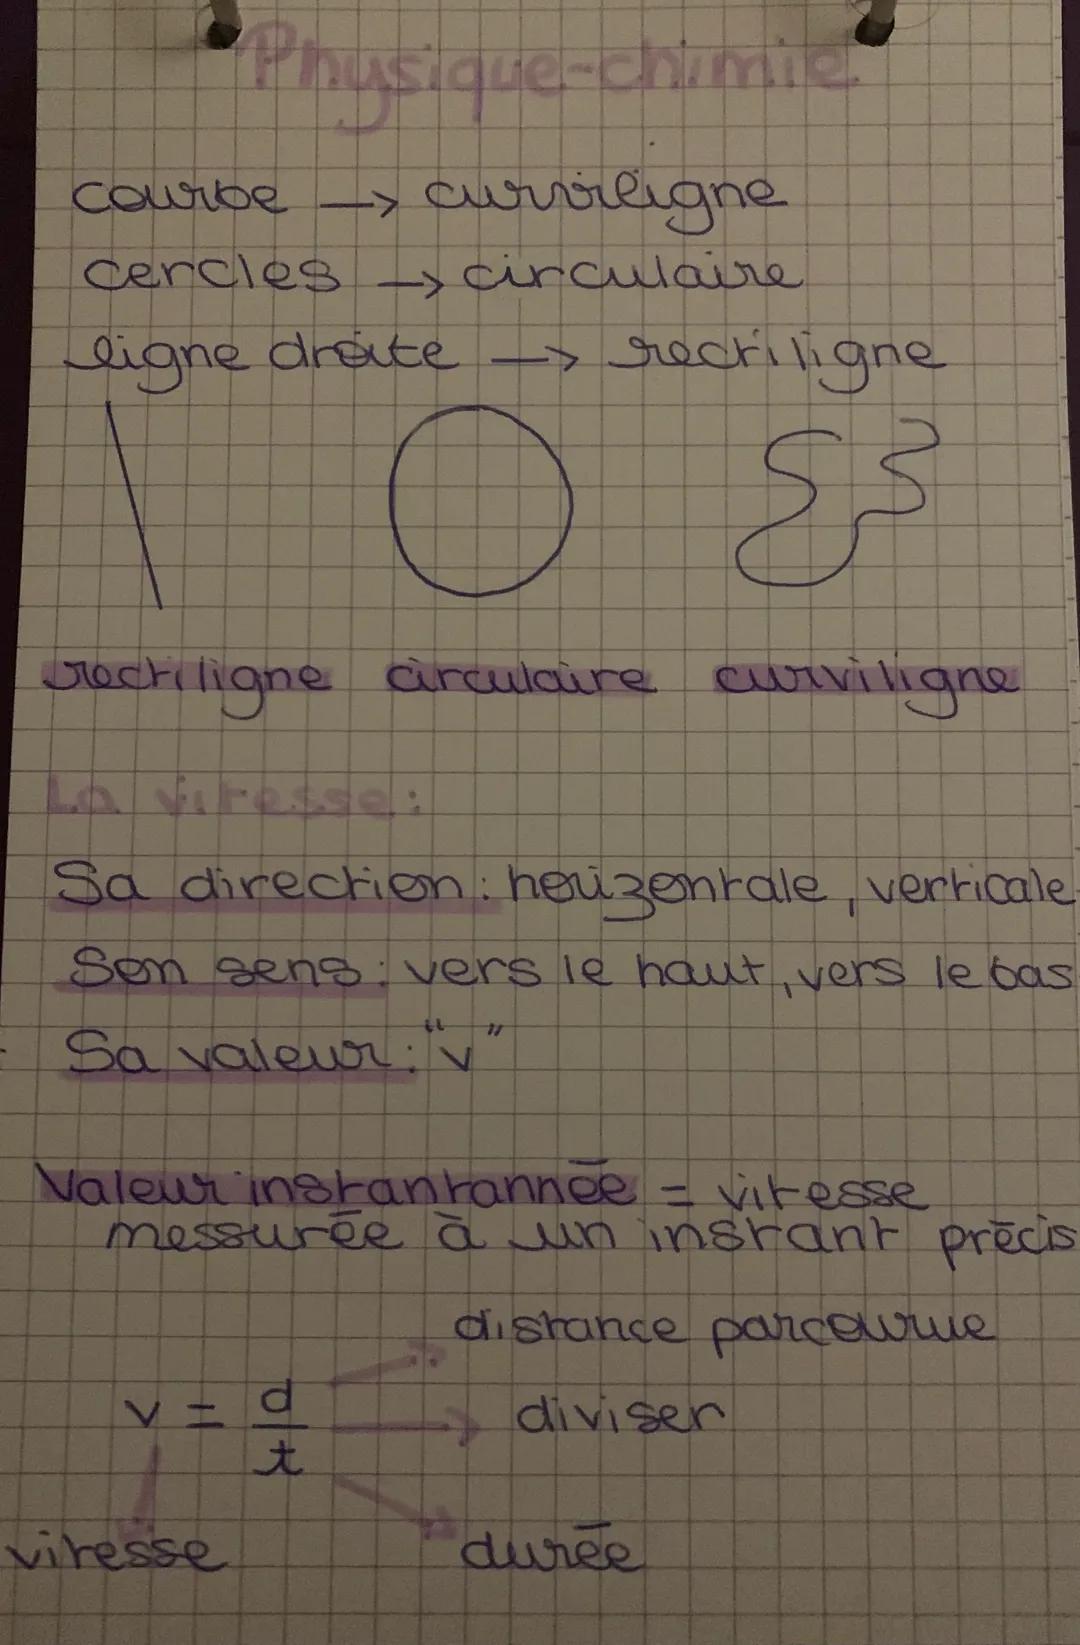 Physique-chimie
courbe → curviligne
cercles → circulaire
ligne droite → rectiligne
rectiligne circulaire curviligne
La vitesse :
Sa direction : horizontale, verticale
Son sens : vers le haut, vers le bas
Sa valeur : "v"
Valeur instantannée = vitesse
messurée à un instant précis
distance parcourue
v = d/t → diviser
vitesse durée